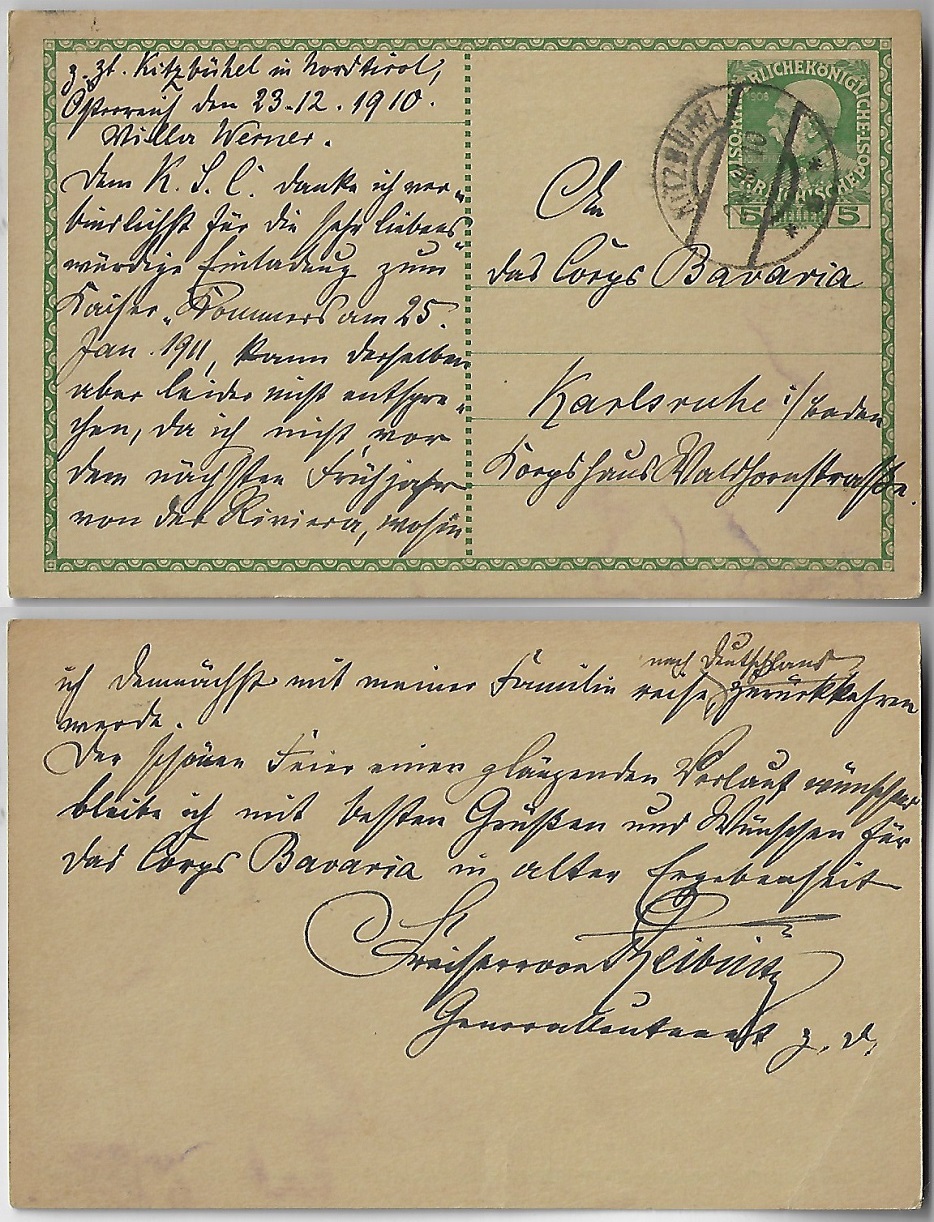 z. Zt. Kitzbühel in Nordtirol,
Österreich den 23.12.1910.
Villa Werner.
Dem K. S. C. danke ich ver-
bindlichst für die sehr liebens-
würdige Einladung zum
Kaiser-Kommers am 25.
Jan. 1911, kann derselben
aber leider nicht entspre-
chen, da ich nicht vor
dem nächsten Frühjahr
von der Riviera, wohin
KITZBÜHEL
KAISERLICHEKÖNIGLICHE
ÖSTERREICHISCHE POST
5 5
An
das Corps Bavaria
Karlsruhe i/Baden
Korpshaus Waldhornstrasse.
ich demnächst mit meiner Familie reise, nach Deutschland zurückkehren
werde.
Der schönen Feier einen glänzenden Verlauf wünschend
bleibe ich mit besten Grüßen und Wünschen für
das Corps Bavaria in alter Ergebenheit
Freiherr von Reibnitz
Generalleutnant z. D.